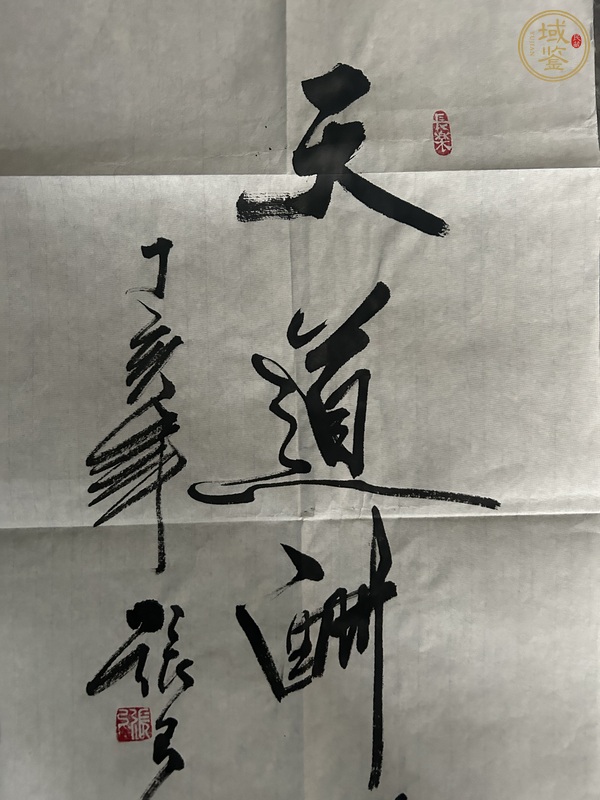 天道酬
丁亥年 張
長樂
張
域鉴
YUJIAN